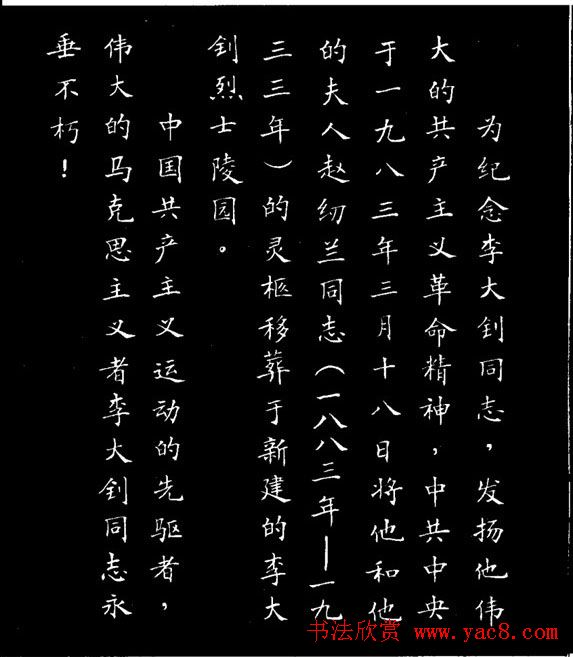 为纪念李大钊同志，发扬他伟
大的共产主义革命精神，中共中央
于一九八三年三月十八日将他和他
的夫人赵纫兰同志（一八八三年—一九
三三年）的灵柩移葬于新建的李大
钊烈士陵园。
中国共产主义运动的先驱者，
伟大的马克思主义者李大钊同志永
垂不朽！
书法欣赏 www.yac8.com